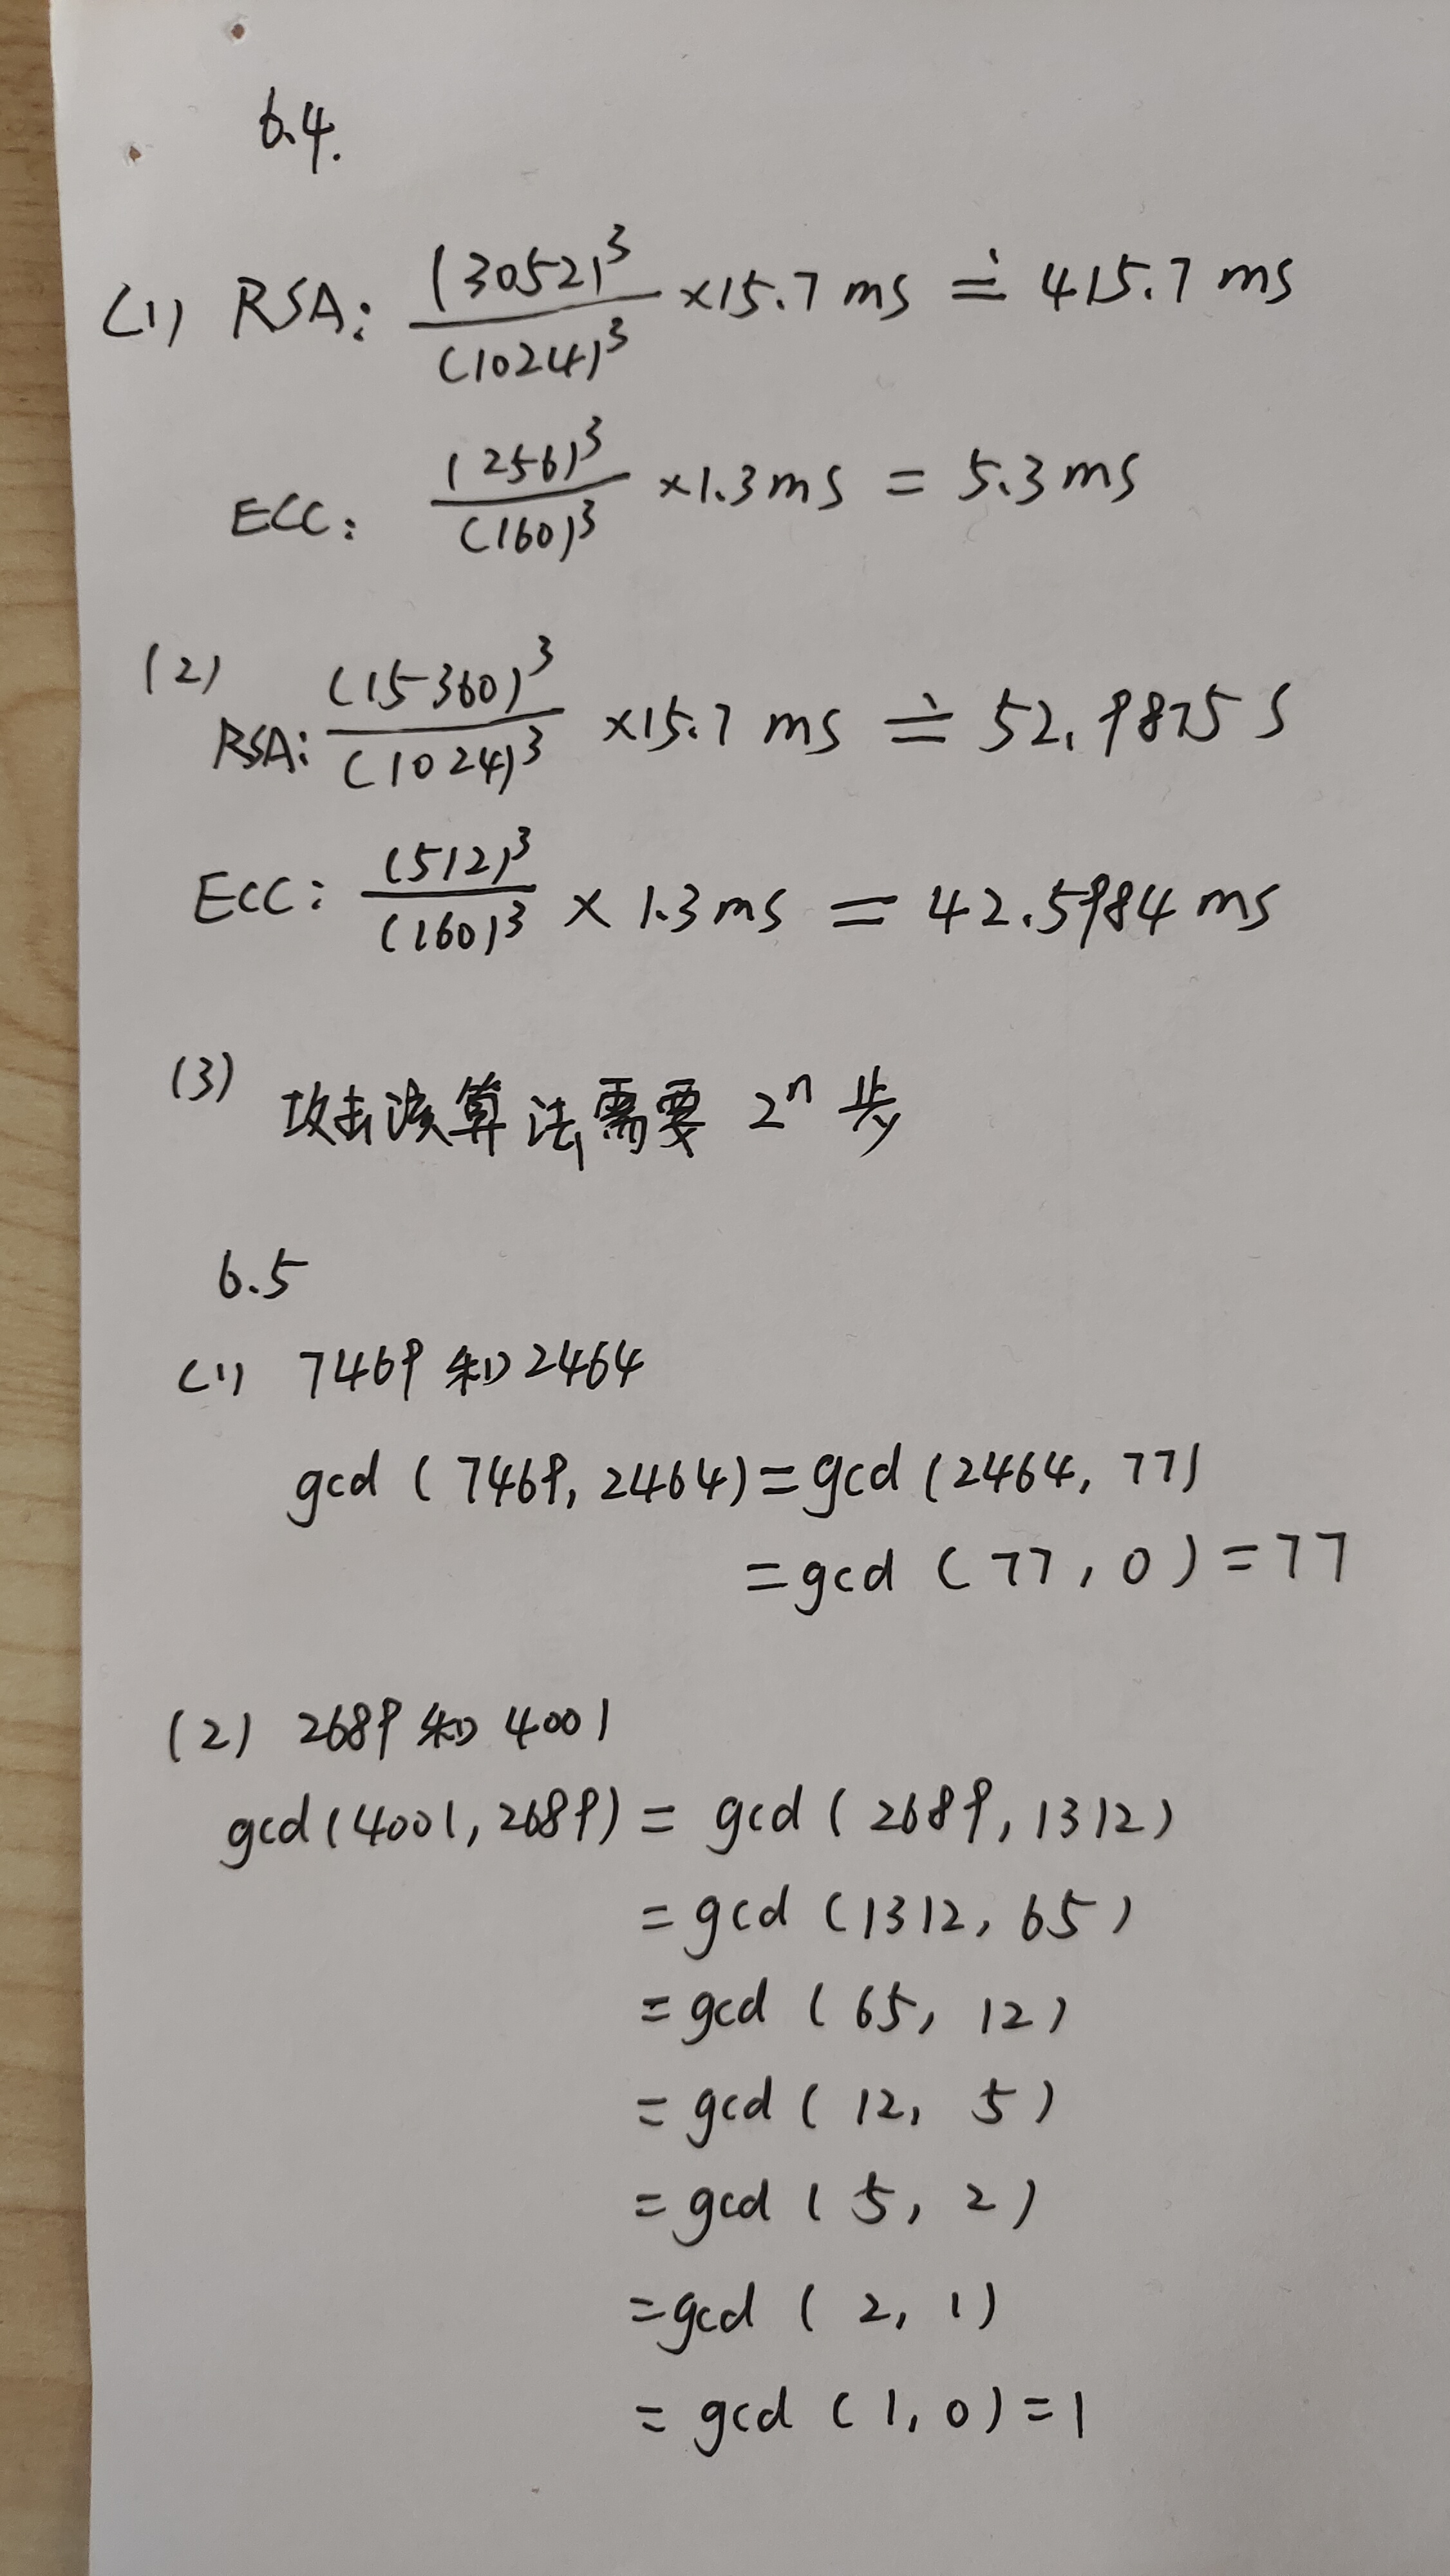 6.4.
(1) RSA: (3052)³/(1024)³ ×15.7 ms ≐ 415.7 ms
ECC: (256)³/(160)³ ×1.3ms = 5.3ms
(2)
RSA: (15360)³/(1024)³ ×15.7 ms ≐ 52.9875 s
ECC: (512)³/(160)³ × 1.3ms = 42.5984 ms
(3) 攻击该算法需要 2ⁿ 步
6.5
(1) 7469 和 2464
gcd (7469, 2464) = gcd (2464, 77)
= gcd (77, 0) = 77
(2) 2689 和 4001
gcd (4001, 2689) = gcd (2689, 1312)
= gcd (1312, 65)
= gcd (65, 12)
= gcd (12, 5)
= gcd (5, 2)
= gcd (2, 1)
= gcd (1, 0) = 1